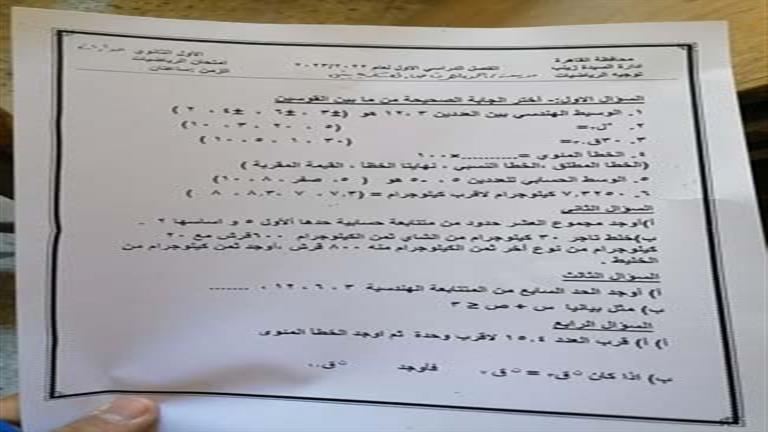 محافظة القاهرة
ادارة السيدة زينب
توجيه الرياضيات
الفصل الدراسي الاول لعام ٢٠٢٣/٢٠٢٢
الاول الثانوي
امتحان الرياضيات
الزمن : ساعتان
السؤال الاول:- أختر الجابة الصحيحة من ما بين القوسين
١. الوسيط الهندسي بين العددين ٣ ، ١٢ هو ( ±٣ ، ±٦ ، ±٤ ، ٢ )
٢. ل = ( ٥ ، ٢٠ ، ٣ ، ١٠ )
٣. ٣٠ق = ( ٣٠ ، ١ ، ٥ ، ١٠ )
٤. الخطأ المنوي = ...........×١٠٠
(الخطا المطلق ،الخطا النسبي ، نهايتا الخطا ، القيمة المقربة )
٥. الوسط الحسابي للعددين ٥ ، -٥ هو ( ٥ ، صفر ، ١٠ ، ٨ )
٦. ٧,٣٢٥٠ كيلوجرام لاقرب كيلوجرام = ( ٧,٣ ، ٧ ، ٨,٣ ، ٨ )
السؤال الثاني
أ)أوجد مجموع العشر حدود من متتابعة حسابية حدها ألأول ٥ و اساسها ٢ .
ب)خلط تاجر ٣٠ كيلوجرام من الشاي ثمن الكيلوجرام ٦٠٠قرش مع ٢٠
كيلوجرام من نوع أخر ثمن الكيلوجرام منه ٨٠٠ قرش ،أوجد ثمن كيلوجرام من
الخليط .
السؤال الثالث
أ) أوجد الحد السابع من المتتابعة الهندسية ٣ ، ٦ ، ١٢ ، .......
ب) مثل بيانيا س + ص ≤ ٣
السؤال الرابع
أ) أ) قرب العدد ١٥,٤ لاقرب وحدة ثم اوجد الخطأ المنوى
ب) اذا كان ن ق = ن ق فأوجد ن ق